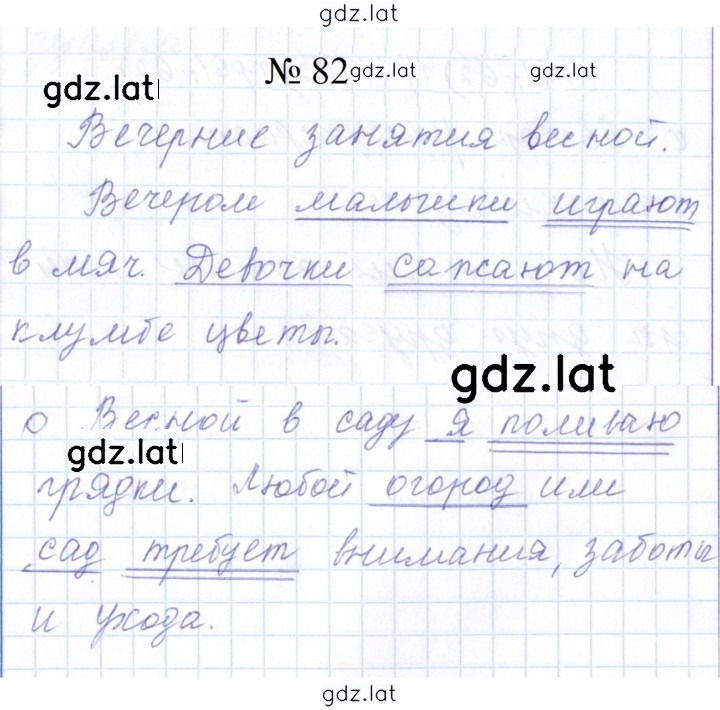 gdz.lat
№ 82 gdz.lat gdz.lat
gdz.lat
Вечерние занятия весной.
Вечером малыши играют
в мяч. Девочки сажают на
клумбе цветы.
gdz.lat
о Весной в саду я поливаю
gdz.lat
грядки. Любой огород или
сад требует внимания, заботы
и ухода.
gdz.lat